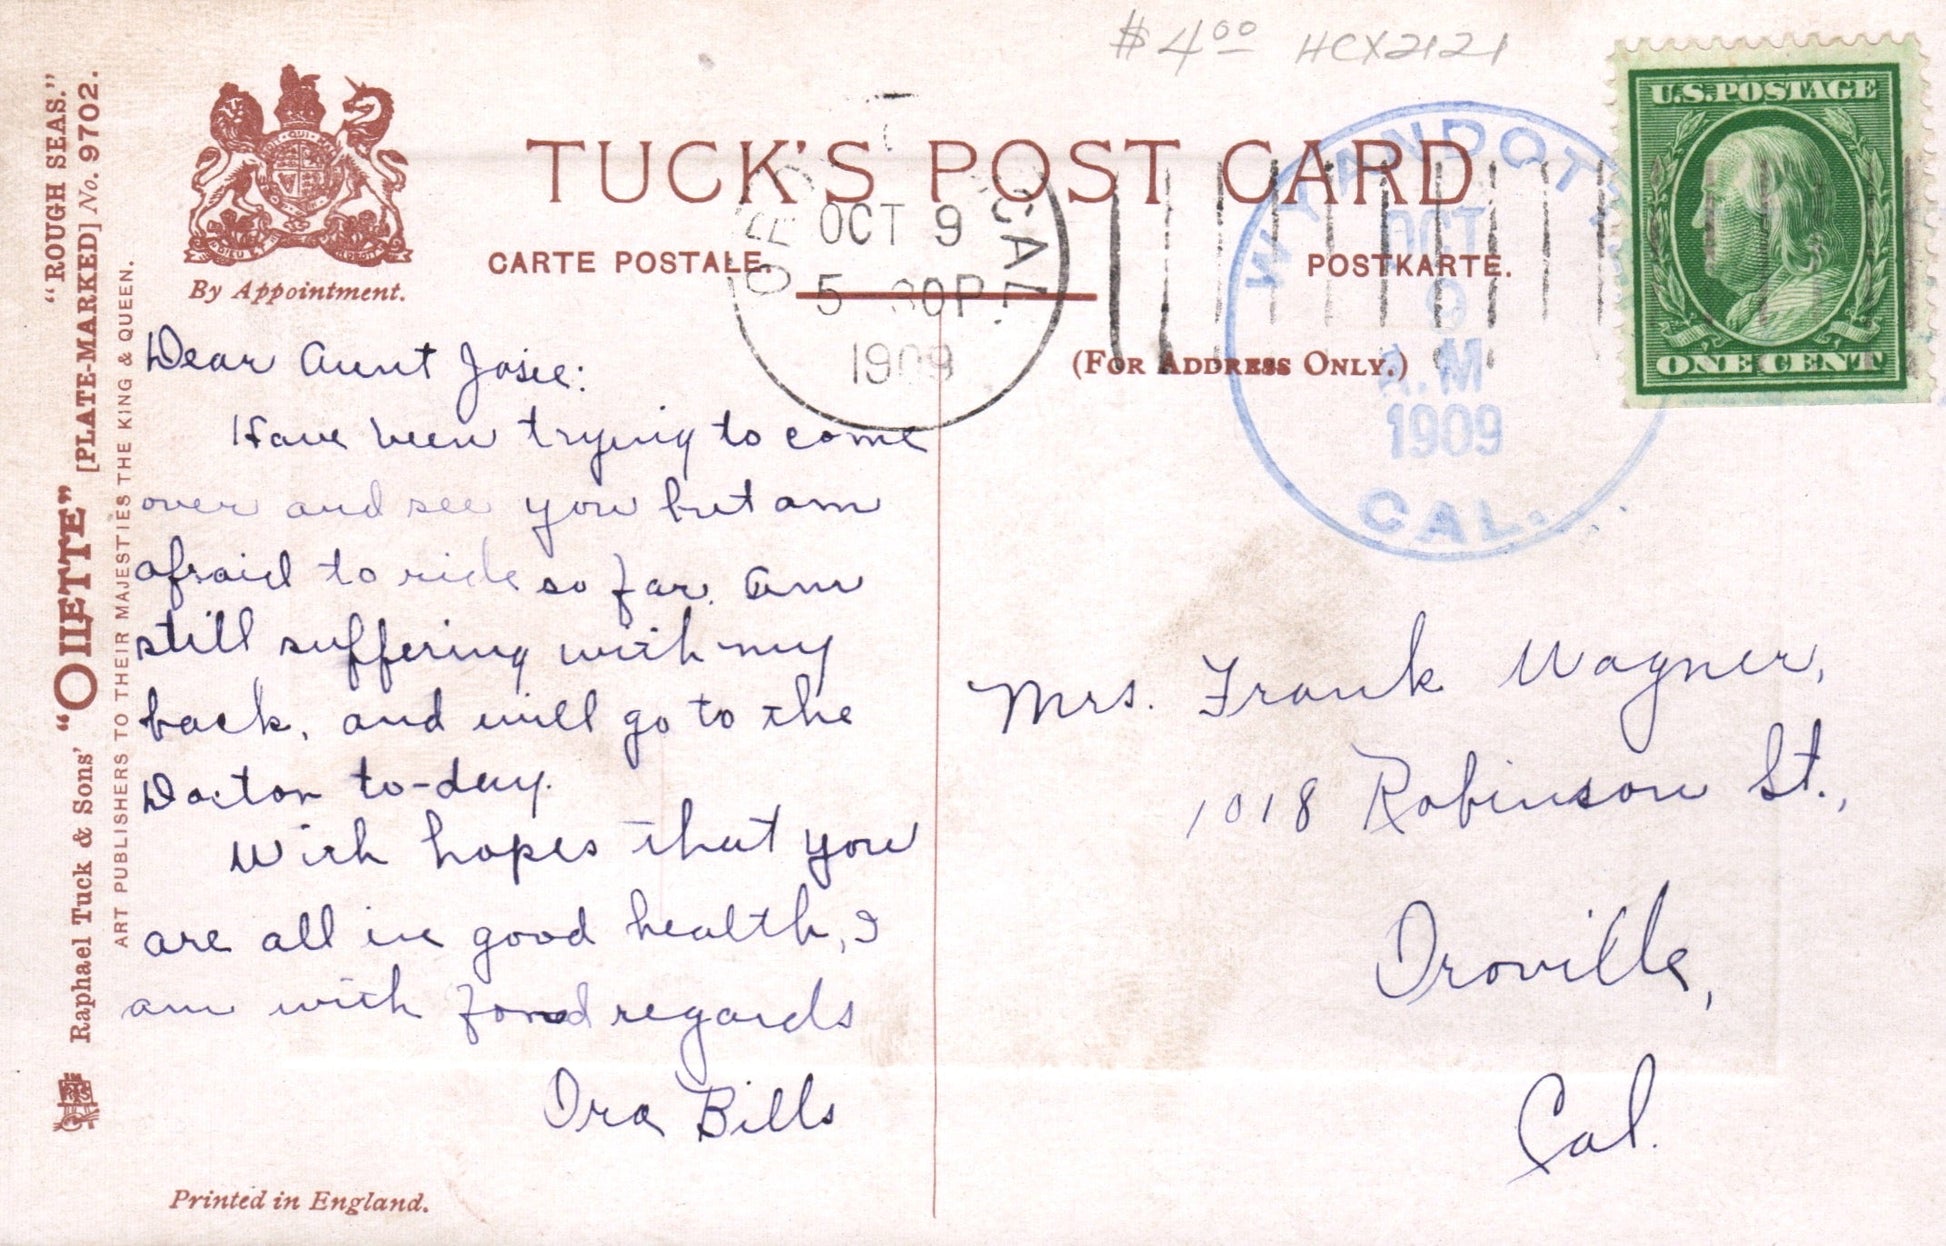 $4.00 HCX2121
TUCK'S POST CARD
CARTE POSTALE
POSTKARTE.
(FOR ADDRESS ONLY.)
By Appointment.
"ROUGH SEAS."
[PLATE-MARKED] No. 9702.
Raphael Tuck & Sons' "OILETTE"
ART PUBLISHERS TO THEIR MAJESTIES THE KING & QUEEN.
CAL.
OCT 9
1909
WYANDOTT
OCT
9
A.M
1909
CAL.
U.S. POSTAGE
ONE CENT
Dear Aunt Josie:
Have been trying to come
over and see you but am
afraid to ride so far. Am
still suffering with my
back, and will go to the
Doctor to-day.
With hopes that you
are all in good health, I
am with fond regards
Ora Bills
Mrs. Frank Wagner,
1018 Robinson St.,
Oroville,
Cal.
Printed in England.